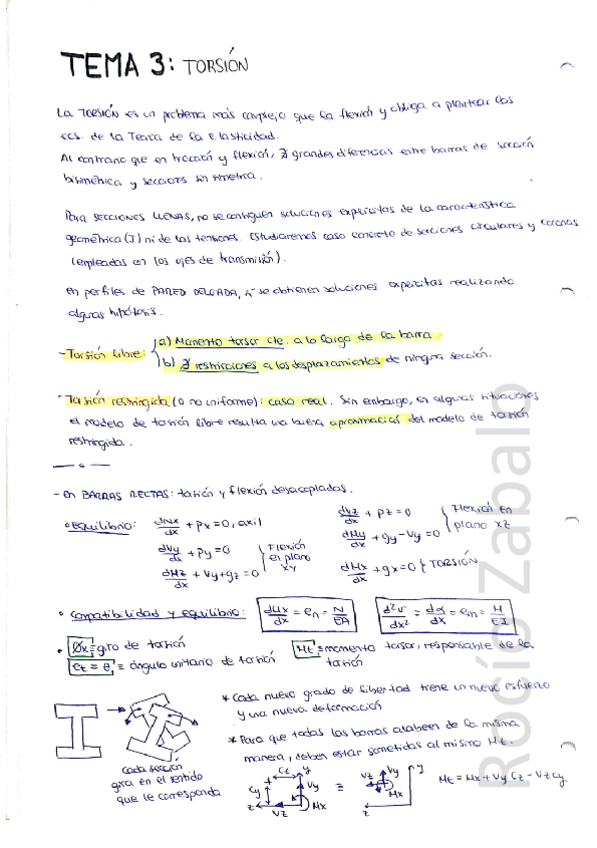 TEMA 3: TORSIÓN
La TORSIÓN es un problema más complejo que la flexión y obliga a plantear las
ecs. de la Teoría de la Elasticidad.
Al contrario que en tracción y flexión, ∃ grandes diferencias entre barras de sección
bisimétrica y secciones sin simetría.
Para SECCIONES LLENAS, no se consiguen soluciones explícitas de la característica
geométrica (J) ni de las tensiones. Estudiaremos caso concreto de secciones circulares y coronas
(empleadas en los ejes de transmisión).
En perfiles de PARED DELGADA, sí se obtienen soluciones explícitas realizando
algunas hipótesis.
- Torsión libre:
a) Momento torsor cte. a lo largo de la barra
b) ∄ restricciones a los desplazamientos de ninguna sección.
- Torsión restringida (o no uniforme): caso real. Sin embargo, en algunas situaciones
el modelo de torsión libre resulta una buena aproximación del modelo de torsión
restringida.
- En BARRAS RECTAS: torsión y flexión desacopladas.
• Equilibrio: dNx/dx + px = 0, axil
dVy/dx + py = 0
dMz/dx + Vy + gz = 0
Flexión
en plano
xy
dVz/dx + pz = 0
dMy/dx + gy - Vy = 0
Flexión en
plano xz
dMx/dx + gx = 0 } TORSIÓN
• Compatibilidad y equilibrio: dux/dx = en = N/EA
d²v/dx² = dα/dx = em = M/EI
• Øx = giro de torsión
et = θ' = ángulo unitario de torsión
Mt = momento torsor, responsable de la
torsión
* Cada nuevo grado de libertad tiene un nuevo esfuerzo
y una nueva deformación
* Para que todas las barras alabeen de la misma
manera, deben estar sometidas al mismo Mt.
Cada sección
gira en el sentido
que le corresponda
Cz
y
Cy
Vy
z
Vz
Mx
≡
Vz
Vy
y
Mx
z
Mt = Mx + Vy Cz - Vz Cy
Rocío Zaballo